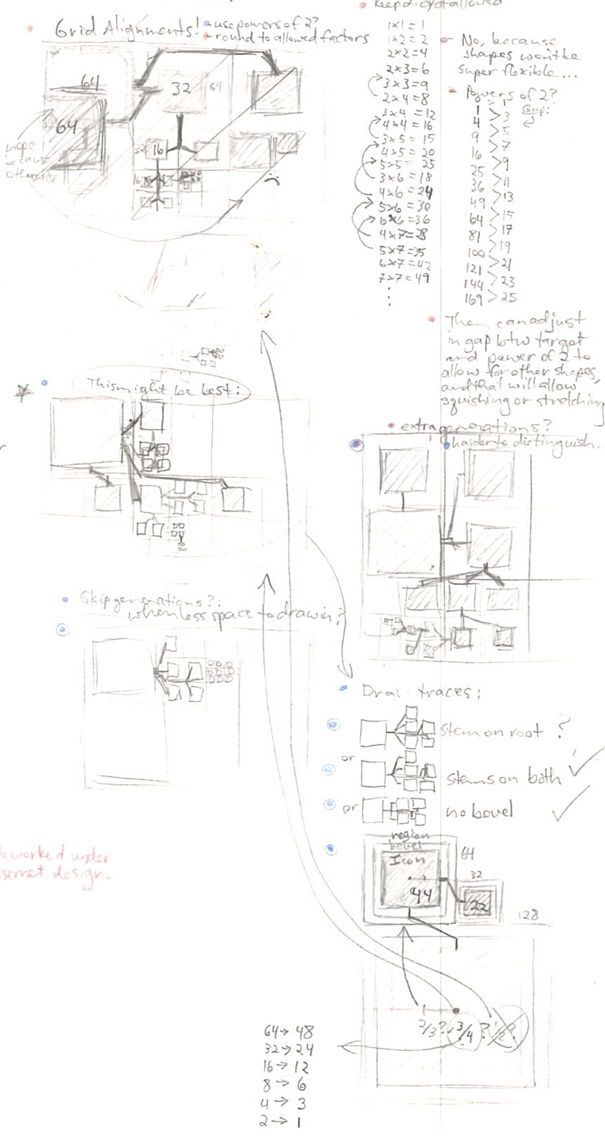 keep dic of allowed
Grid Alignments!
use powers of 2?
round to allowed factors
64
32
64
64
32 16
nope
1x1=1
1x2=2
2x2=4
2x3=6
3x3=9
2x4=8
3x4=12
4x4=16
3x5=15
4x5=20
5x5=25
3x6=18
4x6=24
5x6=30
6x6=36
4x7=28
5x7=35
6x7=42
7x7=49
No, because
shapes won't be
super flexible...
Powers of 2?
Gap:
1
4
9
16
25
36
49
64
81
100
121
144
169
3
5
7
9
11
13
15
17
19
21
23
25
Then can adjust
in gap btw target
and power of 2 to
allow for other shapes,
and that will allow
squishing or stretching
This might be best:
extra generations?
harder to distinguish.
Skip generations?:
when less space to draw in?
Draw traces:
stem on root ?
or
stems on both
or
no bevel
region
bevel
Icon
44
64
32
22
128
2/3? 3/4? 1/2?
64→48
32→24
16→12
8→6
4→3
2→1
worked under
design.